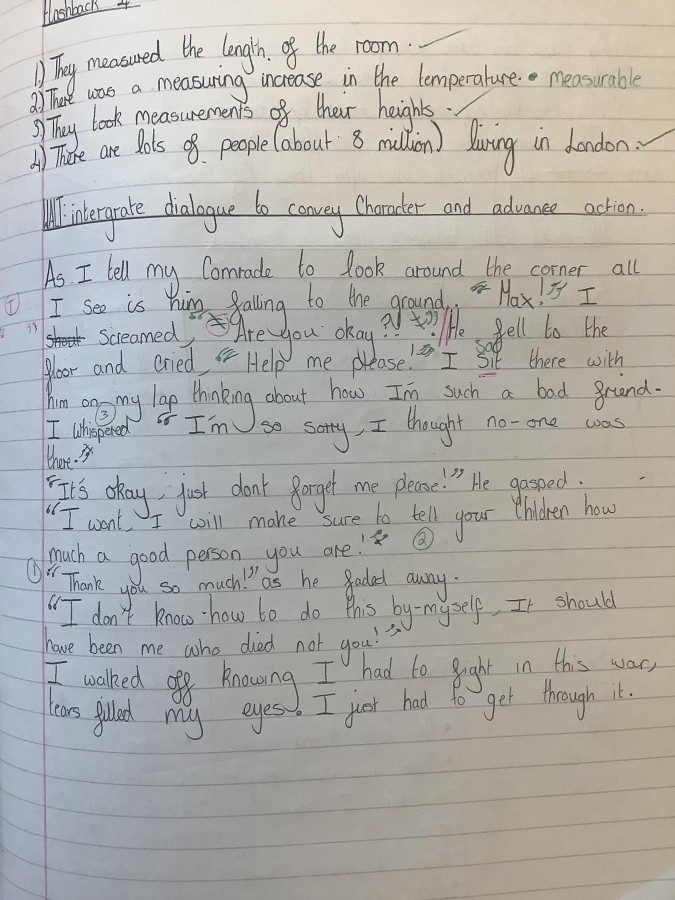 Flashback 4
1) They measured the length of the room. ✓
2) There was a measuring increase in the temperature. • measurable
3) They took measurements of their heights. ✓
4) There are lots of people (about 8 million) living in London. ✓
WALT: intergrate dialogue to convey Character and advance action.
As I tell my Comrade to look around the corner all
I see is him falling to the ground. "Max!" I
shout screamed, "Are you okay?!" // He fell to the
floor and cried, "Help me please!" I sit sat there with
him on my lap thinking about how I'm such a bad friend.
I whispered ③ "I'm so sorry, I thought no-one was
there."
"It's okay, just dont forget me please!" He gasped.
"I wont, I will make sure to tell your Children how
much a good person you are!" ②
① "Thank you so much!" as he faded away.
"I don't know how to do this by-myself, It should
have been me who died not you!"
I walked off knowing I had to fight in this war,
tears filled my eyes. I just had to get through it.